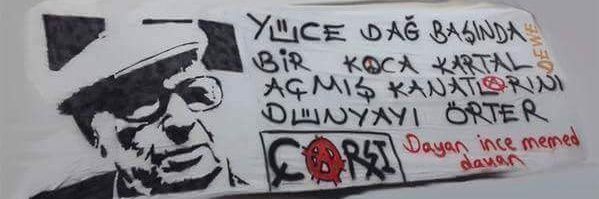 YÜCE DAĞ BAŞINDA
BİR KOCA KARTAL
AÇMIŞ KANATLARINI
DÜNYAYI ÖRTER
DEWE
ÇARŞI
Dayan ince memed
dayan